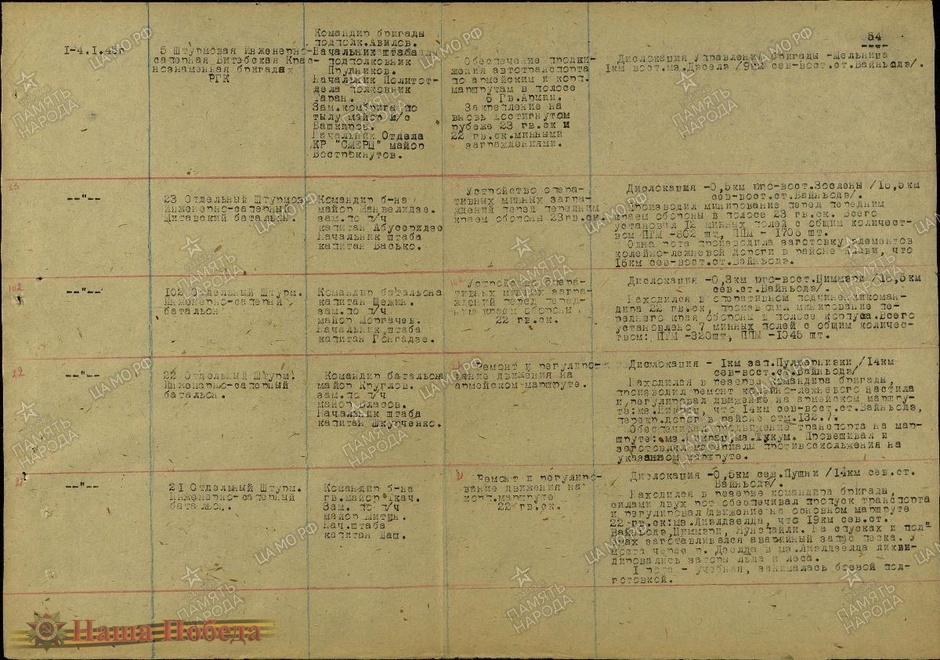 54
I-4.I.45г
5 Штурмовая Инженерно-
саперная Витебская Крас-
нознаменная бригада
РГК
Командир бригады
подполк.Авилов.
Начальник штаба
подполковник
Прудников.
Начальник Политот-
дела полковник
Таран.
Зам.комбрига по
тылу майор и/с
Башкиров.
Начальник Отдела
КР "СМЕРШ" майор
Вострокнутов.
Обеспечение продви-
жения автотранспорта
по армейским и корп.
маршрутам в полосе
6 Гв.Армии.
Закрепление на
вновь достигнутом
рубеже 23 гв.ск и
22 гв.ск.минными
заграждениями.
Дислокация Управления бригады -Мельница
1км вост.мз.Дзелда /9км сев-вост.ст.Вайньоде/.
--"--
23 Отдельный Штурмов.
Инженерно-саперный
батальон.
Командир б-на
майор
зам.по п/ч
капитан Абусеридзе
Начальник штаба
капитан Васько.
Устройство опера-
тивных минных заграж-
дений перед передним
краем обороны 23гв.ск.
Дислокация -0,5км юго-вост.Зослены /15,5км
сев-вост.ст.Вайньоде/.
Производил минирование перед передним
краем обороны в полосе 23 гв.ск. Всего
установил 12 минных полей с общим количест-
вом ПТМ -802 шт, ППМ - 1705 шт.
Одна рота производила заготовку элементов
колейно-лежневой дороги в районе что
15км сев-вост.ст.Вайньоде.
102
--"--
102 Отдельный Штурм.
Инженерно-саперный
батальон.
Командир батальона
капитан
зам.по п/ч
майор Моргачев.
Начальник штаба
капитан Гонгадзе.
Устройство опера-
тивных минных загра-
ждений перед перед-
ним краем обороны
22 гв.ск.
Дислокация -0,3км юго-вост.Циммари /18,5км
сев.ст.Вайньоде/.
Находился в оперативном подчинен.коман-
дира 22 гв.ск, производил минирование пе-
реднего края обороны в полосе корпуса.Всего
установлено 7 минных полей с общим количес-
твом: ПТМ -820шт, ППМ -1045 шт.
22
--"--
22 Отдельный Штурм.
Инженерно-саперный
батальон.
Командир батальона
майор Круглов.
зам.по п/ч
майор Власов.
Начальник штаба
капитан Шкурченко.
Ремонт и регулиро-
вание движения на
армейском-маршруте.
Дислокация - 1км зап.Пулкерниэки /14км
сев-вост.ст.Вайньоде/.
Находился в резерве командира бригады,
производил ремонт колейно-лежневого настила
и,регулировал движение на армейском маршру-
те:мз. что 14км сев-вост.ст.Вайньоде,
перекр.дорог в районе отм.132,7.
Обеспечивал продвижение транспорта на мар-
шруте:мз. мз.Тукум. Провешивал и
заготовлял материалы противоскольжения на
указанном маршруте.
21
--"--
21 Отдельный Штурм.
Инженерно-саперный
батальон.
Командир б-на
гв.майор Ткач.
Зам. по п/ч
майор Митин.
Нач.штаба
капитан Шац.
Ремонт и регулиро-
вание движения на
корп.маршруте
22 гв.ск.
Дислокация -0,5км сев.Пушни /14км сев.ст.
Вайньоде/.
Находился в резерве командира бригады,
силами двух рот обеспечивал пропуск транспорта
и регулировал движение на основном маршруте
22 гв.ск:мз.Лиэлдзелда, что 19км сев.ст.
Вайньоде,Циммари, На спусках и под-
емах заготавливался аварийный запас песка. У
моста через р. Дзелда в мз.Лиэлдзелда ликви-
дировались заторы льда и леса.
I рота - учебная, занималась боевой под-
готовкой.
Наша Победа
ПАМЯТЬ
НАРОДА
ЦАМО.РФ